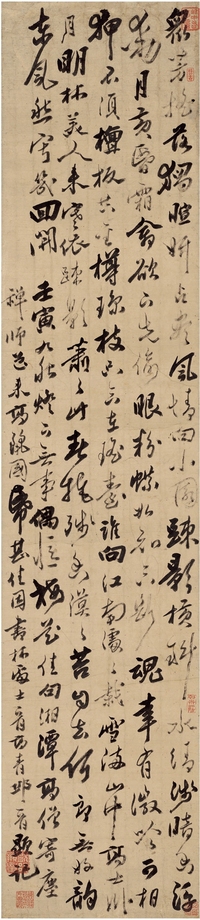 衆芳搖落獨暄妍占盡風情向小園疎影橫斜水清淺暗香浮
動月黃昏霜禽欲下先偷眼粉蝶如知合斷魂幸有微吟可相
狎不須檀板共金樽瓊枝只合在瑤臺誰向江南處處栽雪滿山中高士臥
月明林美人來寒依疎影蕭蕭竹春掩殘香漠漠苔自去何郎無好韻
東風愁寂幾回開 壬寅九秋燈下無事偶憶梅花佳句湘潭高僧寄塵
禪師 來 國 其佳 書林處士一首 青邱一首 記